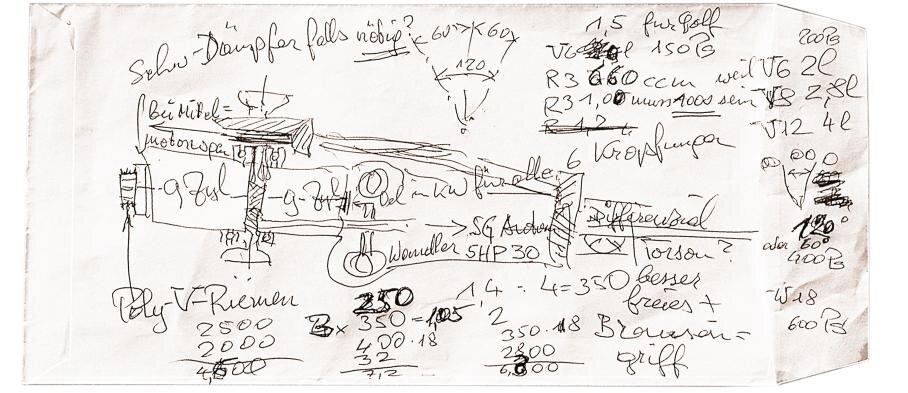 Schw-Dämpfer falls nötig?
60° 60°
120
1,5 für Golf
V6 150 PS
R3 660 ccm weil V6 2l
R3 1,00 muss 1000 sein V8 2,8l
V12 4l
200 PS
6 Kröpfungen
bei Mittel=
motorsper
9 Zyl
9-Zyl
Oel in KW für alle
Wandler
> 5G
5HP 30
Differenzial
Torson?
120°
oder 60°
400 PS
W18
600 PS
Poly-V-Riemen
2500
2000
250
350 = 1,05
400.18
32
7,2
1,4 : 4=350 besser
freies +
Bremsen=
griff
2
350.18
2800